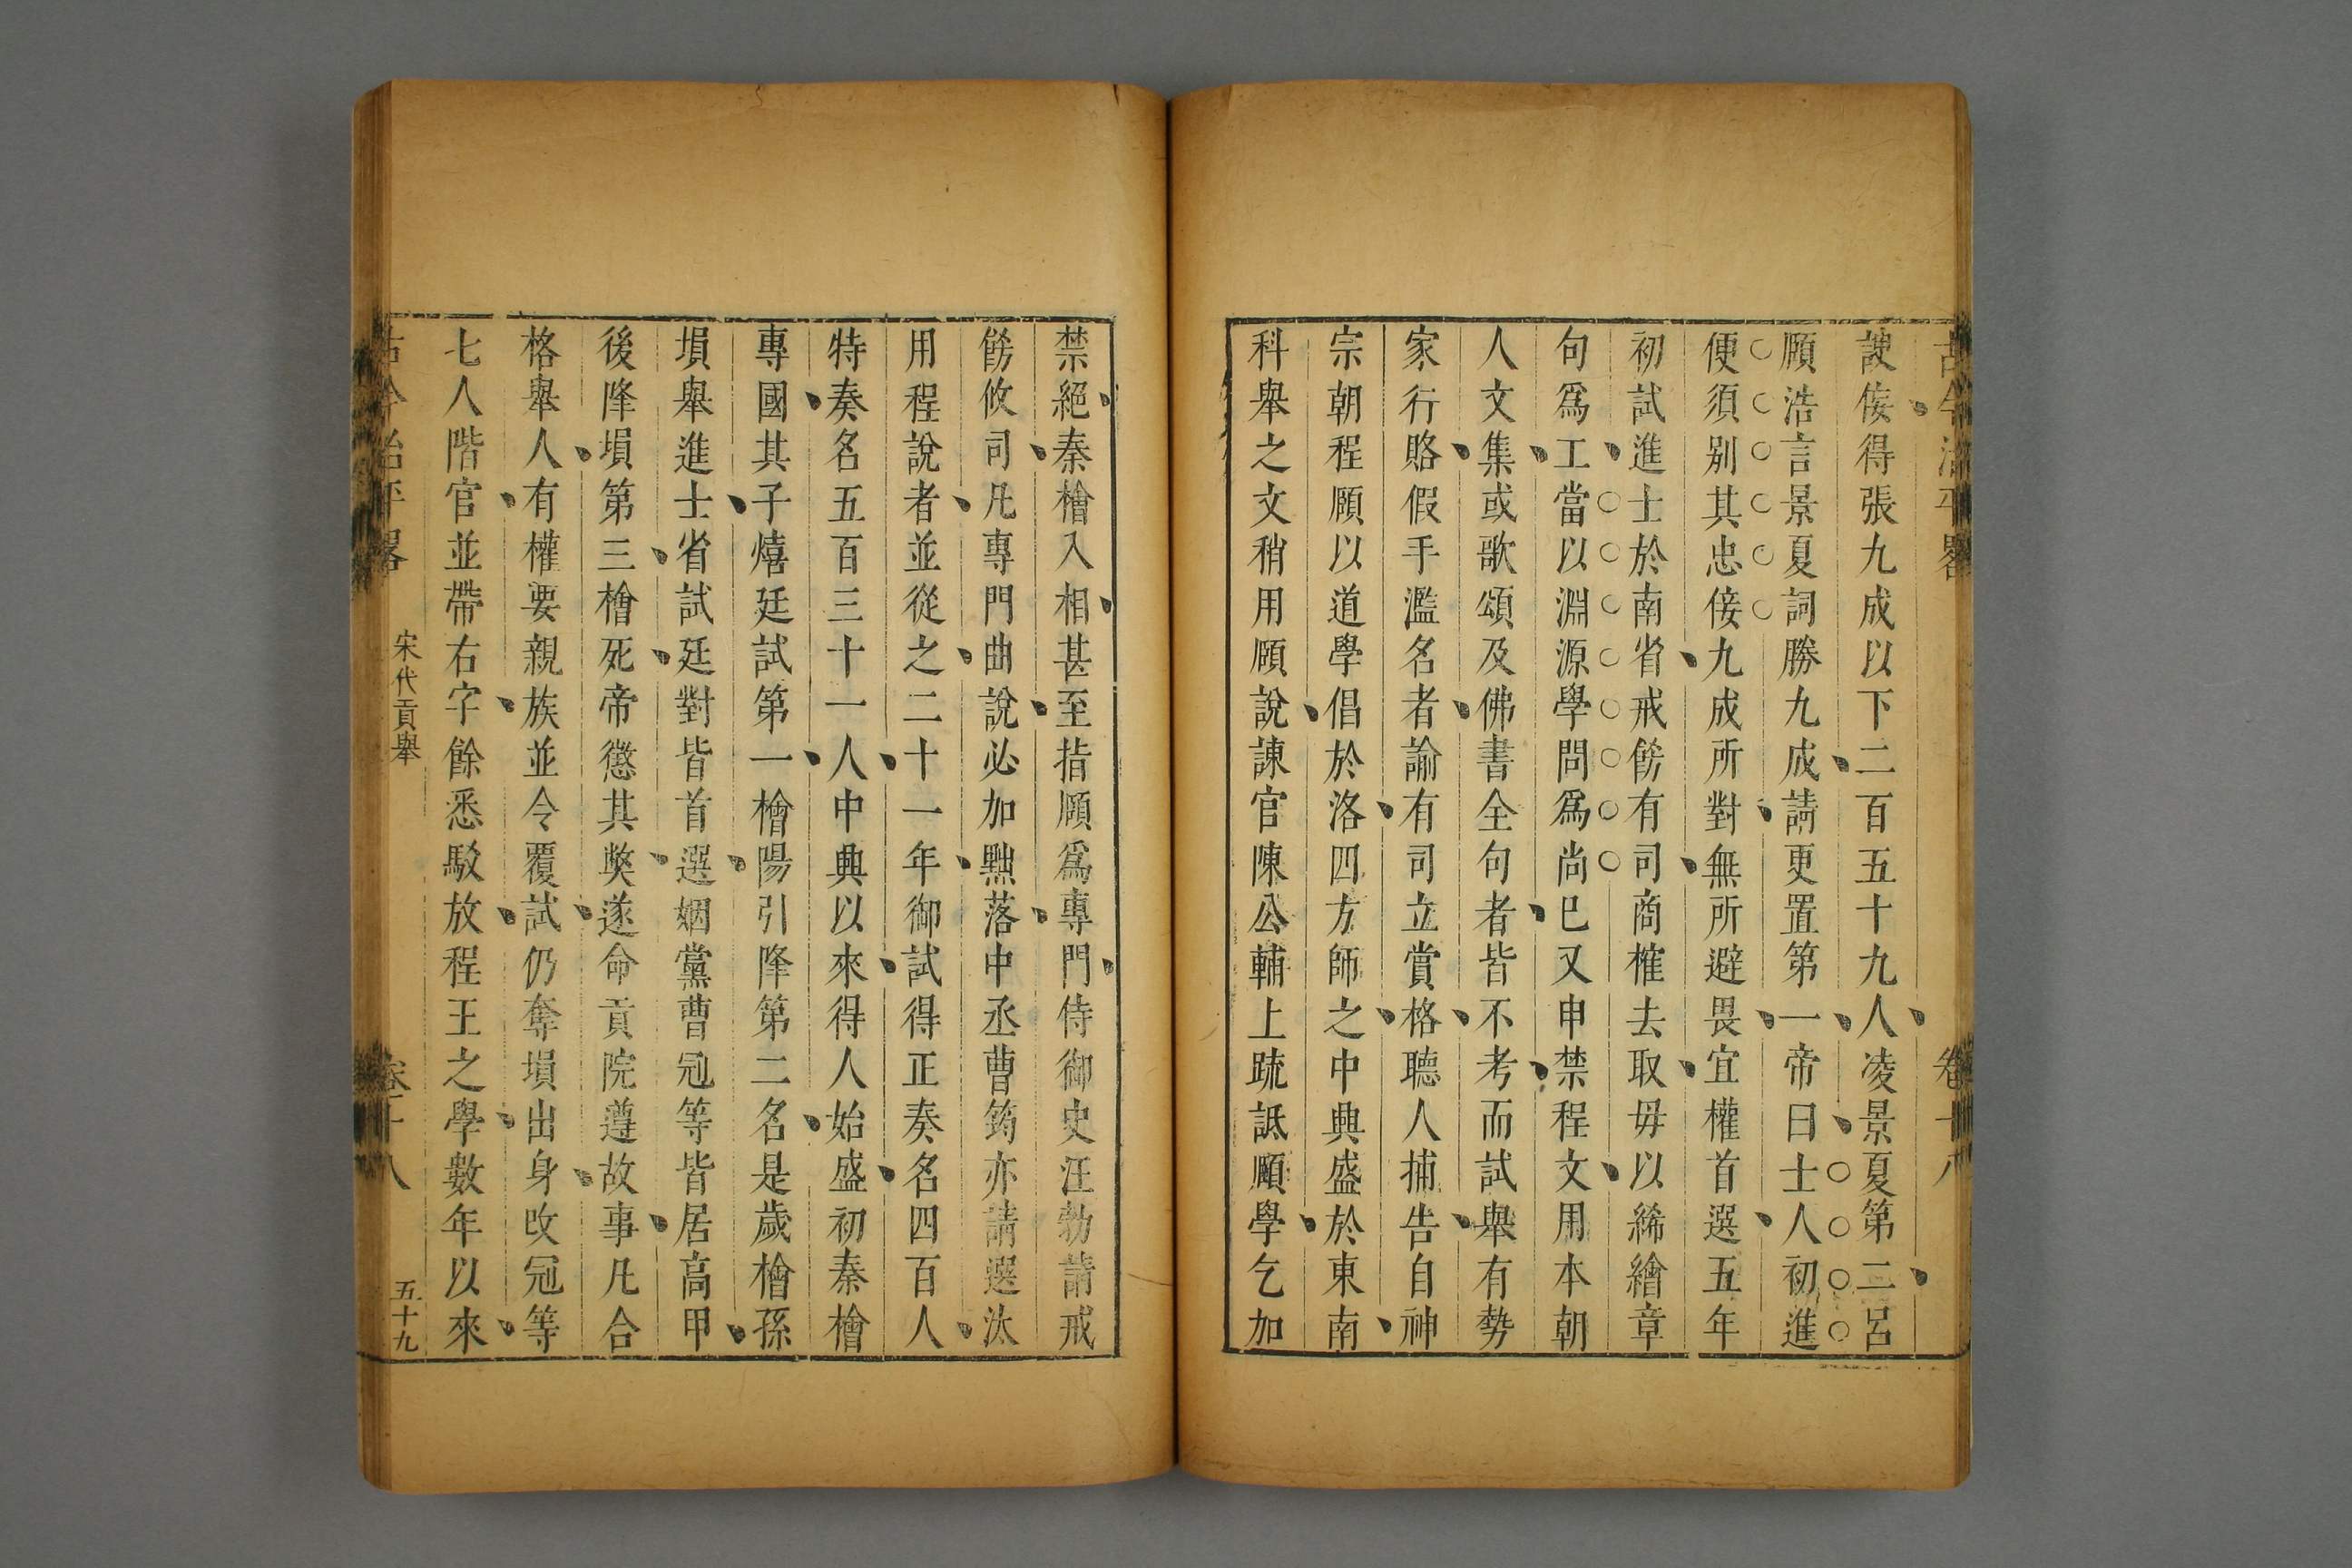 古今治平畧
卷十八
諛佞得張九成以下二百五十九人凌景夏第二呂
頤浩言景夏詞勝九成請更置第一帝曰士人初進
便須別其忠佞九成所對無所避畏宜權首選五年
初試進士於南省戒飭有司商榷去取毋以絺繪章
句爲工當以淵源學問爲尚巳又申禁程文用本朝
人文集或歌頌及佛書全句者皆不考而試舉有勢
家行賂假手濫名者諭有司立賞格聽人捕告自神
宗朝程頤以道學倡於洛四方師之中興盛於東南
科舉之文稍用頤說諫官陳公輔上疏詆頤學乞加
禁絕秦檜入相甚至指頤爲專門侍御史汪勃請戒
飭攸司凡專門曲說必加黜落中丞曹筠亦請選汰
用程說者並從之二十一年御試得正奏名四百人
特奏名五百三十一人中興以來得人始盛初秦檜
專國其子熺廷試第一檜陽引降第二名是歲檜孫
塤舉進士省試廷對皆首選姻黨曹冠等皆居高甲
後降塤第三檜死帝懲其獘遂命貢院遵故事凡合
格舉人有權要親族並令覆試仍奪塤出身改冠等
七人階官並帶右字餘悉駁放程王之學數年以來
古今治平畧
宋代貢舉
卷十八
五十九